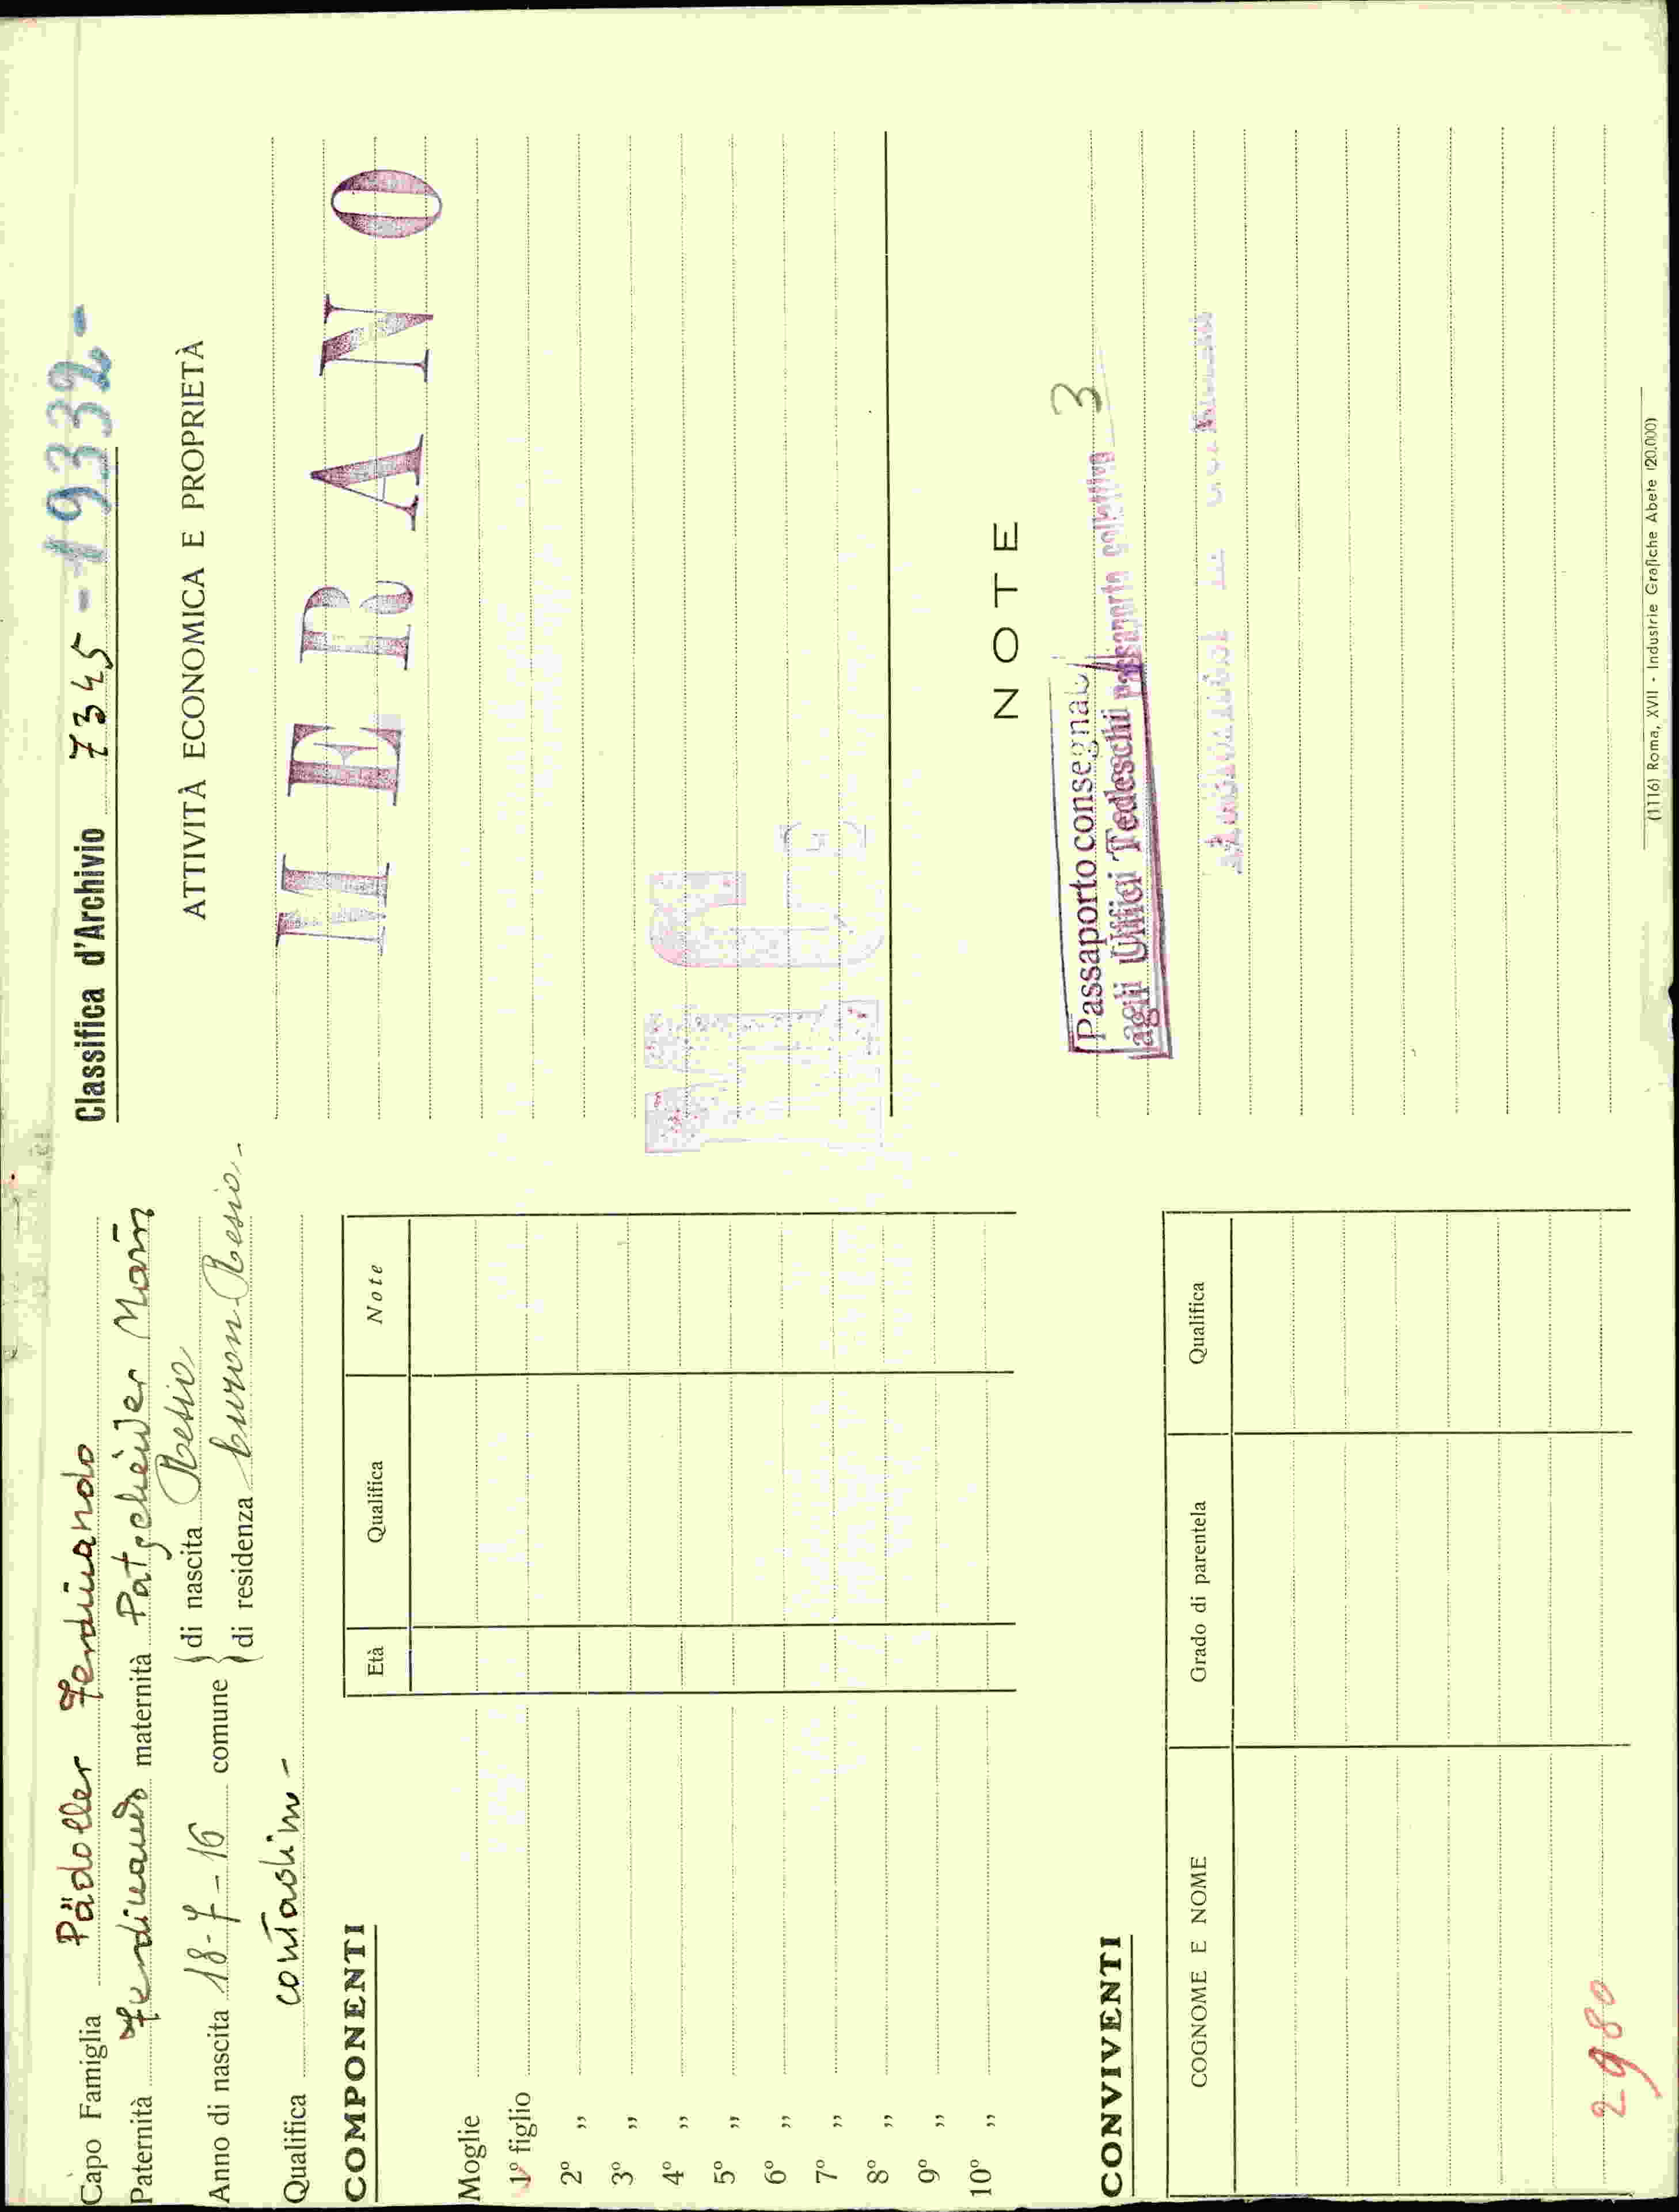 Capo Famiglia Pädoller Ferdinando
Paternità Ferdinando maternità Patscheider Maria
Anno di nascita 18-7-16 comune { di nascita Resio
{ di residenza Curon-Resio-
Qualifica contadino-
COMPONENTI
Età Qualifica Note
Moglie
1° figlio
2° „
3° „
4° „
5° „
6° „
7° „
8° „
9° „
10° „
CONVIVENTI
COGNOME E NOME Grado di parentela Qualifica
2980
Classifica d'Archivio 7345 - 19332-
ATTIVITÀ ECONOMICA E PROPRIETÀ
MERANO
NOTE
Passaporto consegnato
agli Uffici Tedeschi passaporto collettivo 3
(1116) Roma, XVII - Industrie Grafiche Abete (20.000)